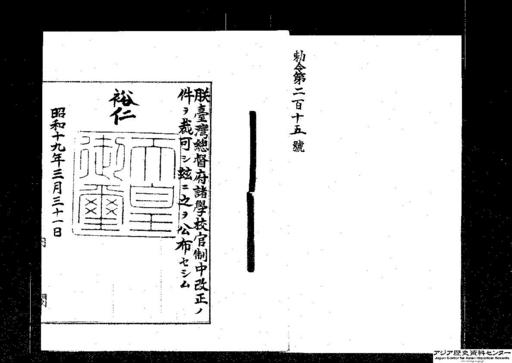 勅令第二百十五號
朕臺灣總督府諸學校官制中改正ノ
件ヲ裁可シ玆ニ之ヲ公布セシム
裕仁
天皇
御璽
昭和十九年三月三十一日
アジア歴史資料センター
Japan Center for Asian Historical Records